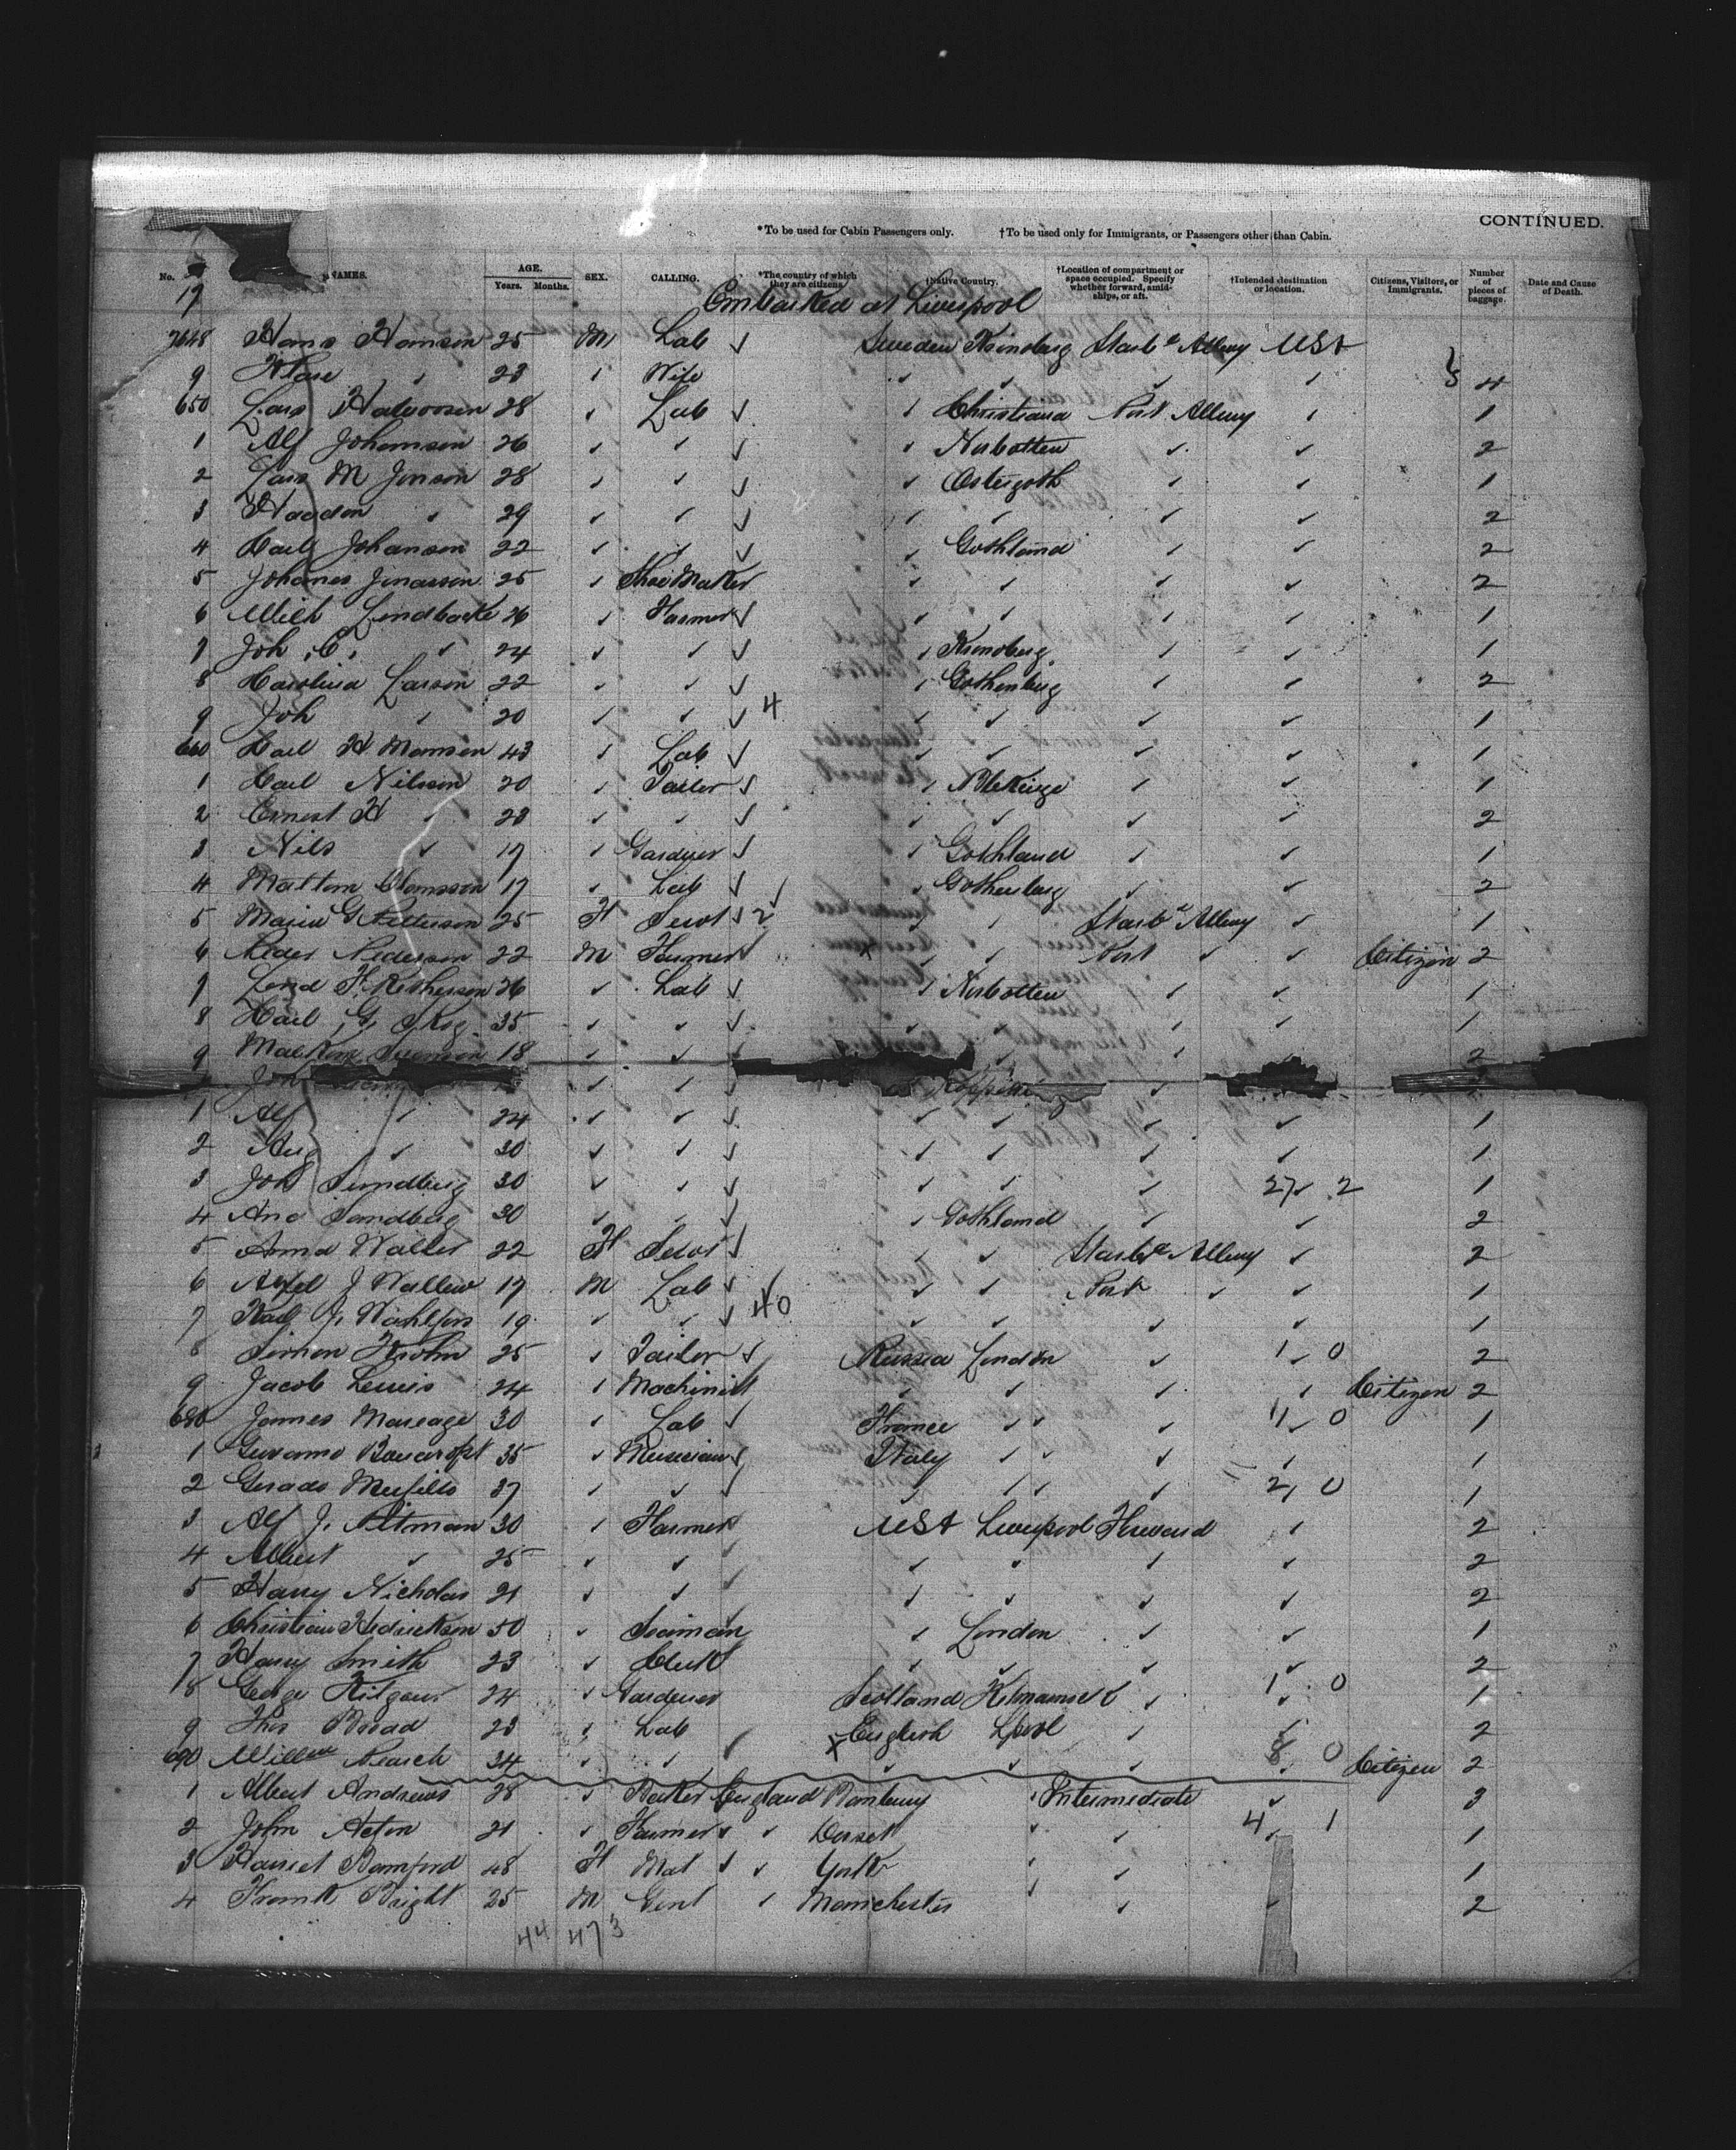 CONTINUED.
*To be used for Cabin Passengers only. †To be used only for Immigrants, or Passengers other than Cabin.
No. NAMES. AGE. Years. Months. SEX. CALLING. *The country of which they are citizens †Native Country. †Location of compartment or space occupied. Specify whether forward, amidships, or aft. †Intended destination or location. Citizens, Visitors, or Immigrants. Number of pieces of baggage. Date and Cause of Death.
17 Embarked at Liverpool
7648 Hans Hanson 25 M Lab ✓ Sweden Starbd Alleny USA
9 23 Wife ✓ ✓ ✓ ✓ 4
650 Lars Halvorsen 28 ✓ Lab ✓ ✓ Christiana Port Alleny ✓ 1
1 Alf Johanson 26 ✓ ✓ ✓ ✓ Norbotten ✓ ✓ 2
2 Lars M Jonson 28 ✓ ✓ ✓ ✓ Ostergoth ✓ ✓ 1
3 ✓ 29 ✓ ✓ ✓ ✓ ✓ ✓ ✓ 2
4 Carl Johanson 22 ✓ ✓ ✓ ✓ Gothland ✓ ✓ 2
5 Johanes 25 ✓ Shoe Maker ✓ ✓ ✓ ✓ 2
6 Lindbacke 26 ✓ Farmer ✓ ✓ ✓ ✓ ✓ 1
7 Joh C, ✓ 24 ✓ ✓ ✓ ✓ Kronoberg ✓ ✓ 1
8 Carolina Larson 22 ✓ ✓ ✓ ✓ Gothenberg ✓ ✓ 2
9 Joh ✓ 20 ✓ ✓ ✓ 4 ✓ ✓ ✓ ✓ 1
660 Carl H Manson 43 ✓ Lab ✓ ✓ ✓ ✓ ✓ 1
1 Carl Nilsson 20 ✓ Tailor ✓ ✓ Blekinge ✓ ✓ 1
2 Ernest H ✓ 23 ✓ ✓ ✓ ✓ ✓ ✓ ✓ 2
3 Nils ✓ 17 ✓ Gardner ✓ ✓ Gothland ✓ ✓ 1
4 17 ✓ Lab ✓ ✓ Gothenberg ✓ ✓ 2
5 Maria G Petterson 25 F Servt ✓ 2 ✓ ✓ Starbd Alleny ✓ 1
6 Peder Pederson 22 M Farmer ✓ x ✓ ✓ Port ✓ ✓ Citizen 2
7 26 ✓ Lab ✓ ✓ Norbotten ✓ ✓ 1
8 Carl G 35 ✓ ✓ ✓ ✓ ✓ ✓ ✓ 1
9 Swenson 18 ✓ ✓ ✓ ✓ 2
Joh ✓ ✓ ✓ ✓
1 Alf ✓ 24 ✓ ✓ ✓ ✓ ✓ ✓ ✓ 1
2 Aug ✓ 30 ✓ ✓ ✓ ✓ ✓ ✓ ✓ 1
3 Joh Sundberg 30 ✓ ✓ ✓ ✓ ✓ ✓ 27 ✓ 2 1
4 Sandberg 30 ✓ ✓ ✓ ✓ Gothland ✓ ✓ 2
5 Anna 22 F Servt ✓ ✓ ✓ Starbd Alleny ✓ 2
6 Axel J 17 M Lab ✓ ✓ ✓ Port ✓ ✓ 1
7 19 ✓ ✓ ✓ 40 ✓ ✓ ✓ ✓ 1
8 Simon Krohn 25 ✓ Tailor ✓ Russia London ✓ 1 0 2
9 Jacob Lewis 24 ✓ Machinist ✓ ✓ ✓ ✓ Citizen 2
680 James 30 ✓ Lab ✓ France ✓ ✓ ✓ 1 0 1
1 35 ✓ Musician ✓ Italy ✓ ✓ ✓ ✓ 1
2 37 ✓ ✓ ✓ ✓ ✓ ✓ ✓ 2 0 1
3 Alf J. Pitman 30 ✓ Farmer USA Liverpool Forward ✓ 2
4 Albert ✓ 25 ✓ ✓ ✓ ✓ ✓ ✓ 2
5 Harry Nicholas 21 ✓ ✓ ✓ ✓ ✓ ✓ 2
6 Christian Hedrickson 50 ✓ Seaman ✓ London ✓ ✓ 1
7 Harry Smith 23 ✓ Clerk ✓ ✓ ✓ ✓ 2
8 George 24 ✓ Gardener Scotland ✓ 1 0 1
9 Thos Broad 23 ✓ Lab x English Lpool ✓ ✓ 2
690 34 ✓ ✓ ✓ ✓ ✓ 8 0 Citizen 2
1 Albert Andrews 28 ✓ Baker England Banbury Intermediate ✓ 3
2 John Acton 21 ✓ Farmer ✓ ✓ Dorset ✓ ✓ 4 1 1
3 Harriet Bamford 48 F Mat ✓ ✓ York ✓ ✓ 1
4 Frank Bright 25 M Gent ✓ Manchester ✓ ✓ ✓ 2
44 47 3